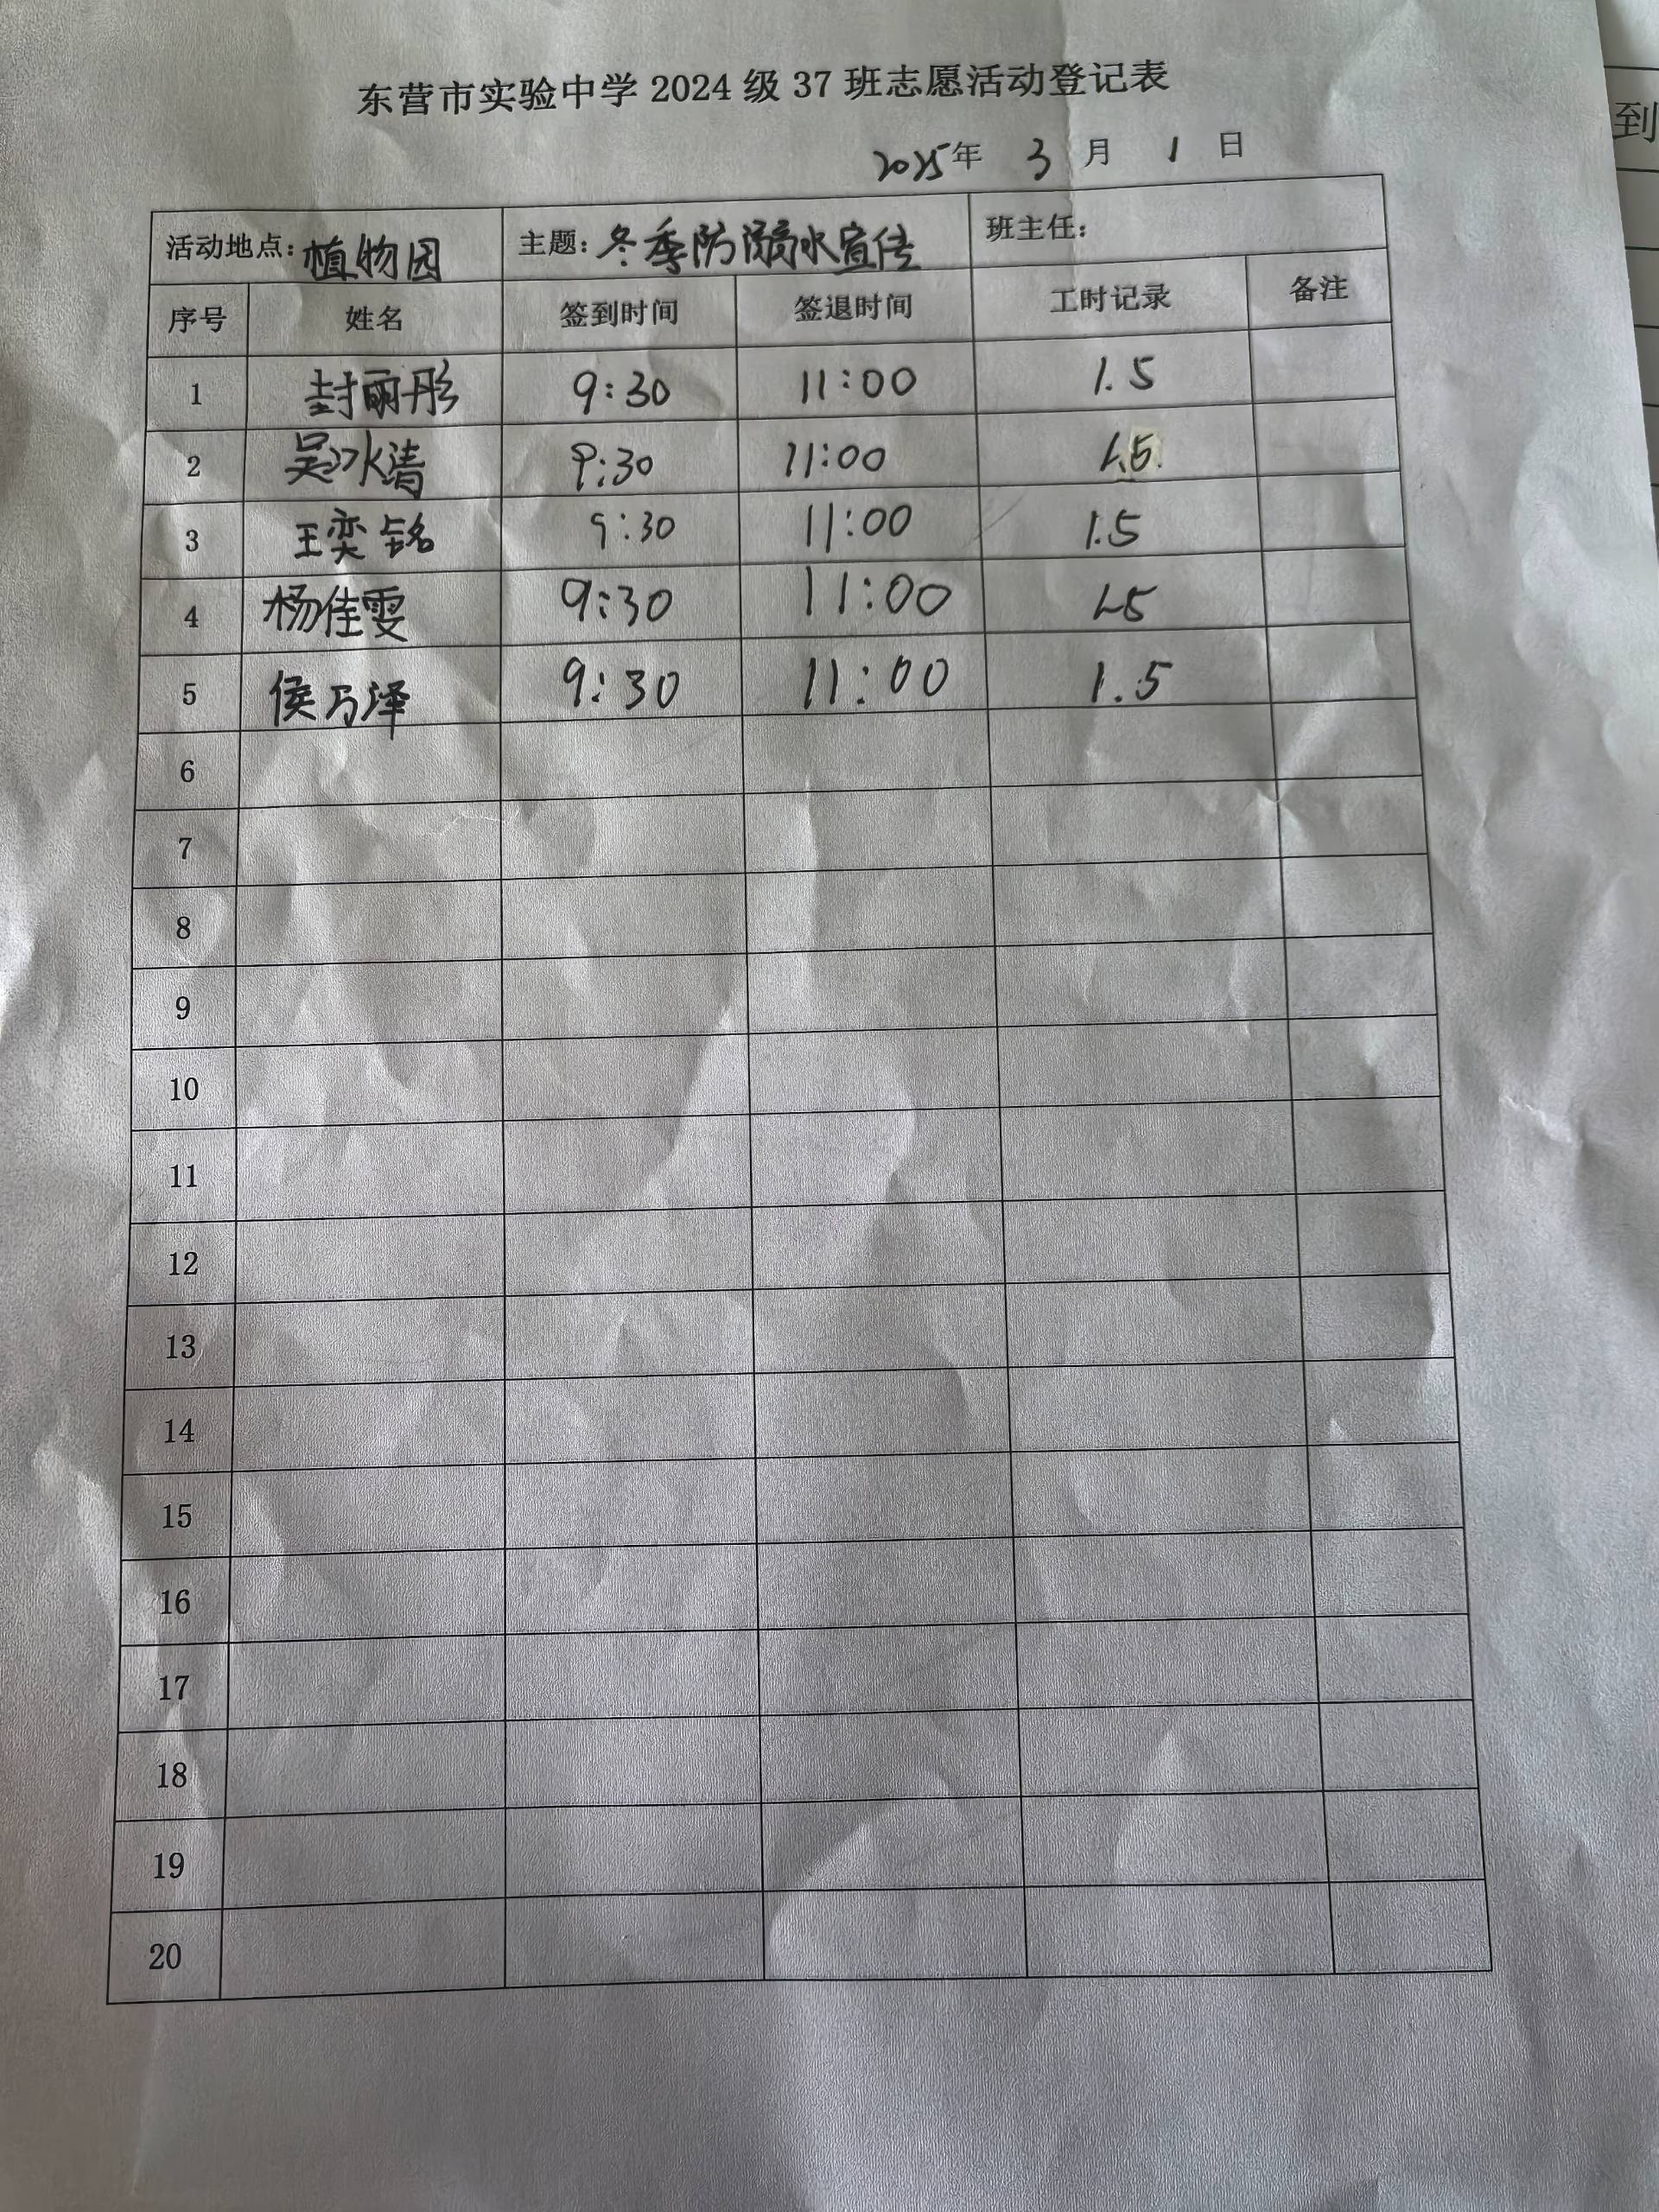 东营市实验中学 2024 级 37 班志愿活动登记表
2025年 3 月 1 日
活动地点：植物园 主题：冬季防溺水宣传 班主任：
序号 姓名 签到时间 签退时间 工时记录 备注
1 封丽彤 9:30 11:00 1.5
2 吴冰清 9:30 11:00 1.5
3 王奕铭 9:30 11:00 1.5
4 杨佳雯 9:30 11:00 1.5
5 侯乃泽 9:30 11:00 1.5
6
7
8
9
10
11
12
13
14
15
16
17
18
19
20
到